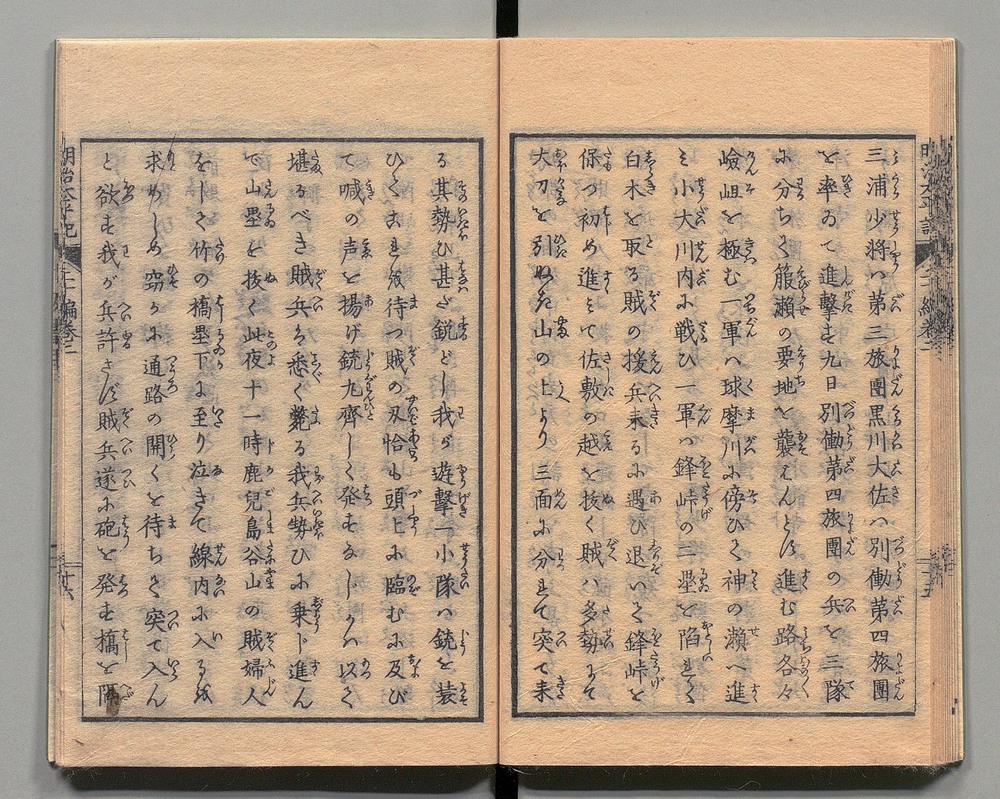 三浦少将ハ第三旅團黒川大佐ハ別働第四旅團
を率ゐて進撃す九日別働第四旅團の兵を三隊
に分ちて箙瀬の要地を襲えんとす進む路各々
嶮岨を極む一軍ハ球摩川に傍ひて神の瀬へ進
み小大川内に戦ひ一軍ハ鋒峠の二塁を陥れて
白木を取る賊の援兵来るに遇ひ退いて鋒峠を
保つ初め進みて佐敷の越を抜く賊ハ多勢にて
大刀を引ぬき山の上より三面に分れて突て来
る其勢ひ甚だ鋭どし我が遊撃一小隊ハ銃を装
ひてこれを待つ賊の刄恰も頭上に臨むに及び
て喊の声を揚げ銃丸齊しく発するしかハ以て
堪るべき賊兵為悉く斃る我兵勢ひに乗じ進ん
で山塁を抜く此夜十一時鹿兒島谷山の賊婦人
をして竹の橋塁下に至り泣きて線内に入るを
求めしめ窃かに通路の開くを待ちて突て入ん
と欲す我が兵許さず賊兵遂に砲を発す橋を隔
明治太平記
二十編巻二
十六
明治太平記
二十編巻二
十五